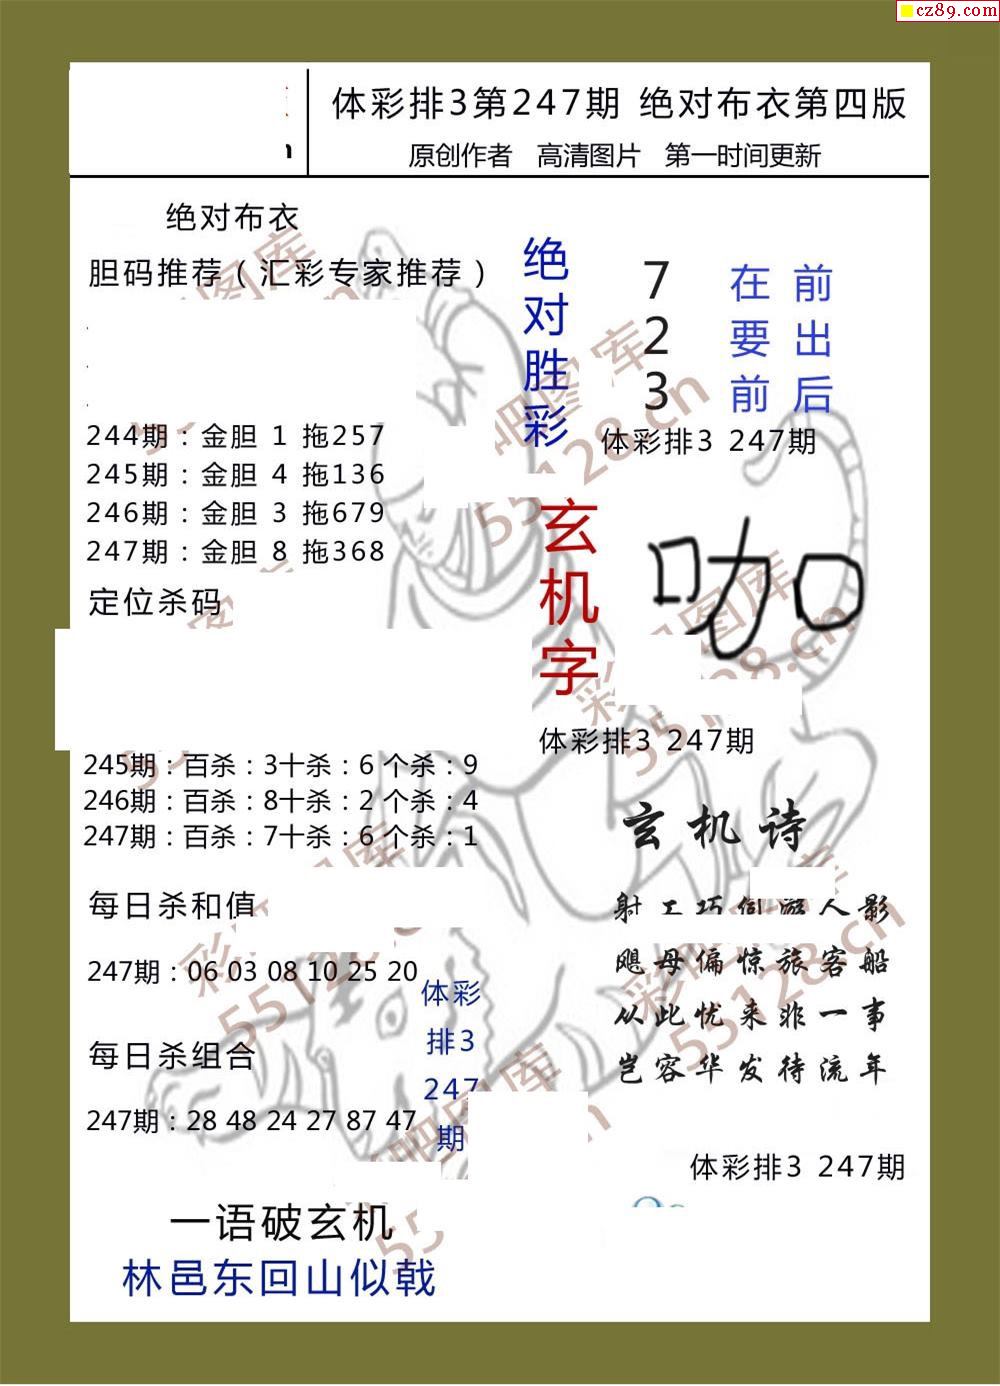 cz89.com
体彩排3第247期 绝对布衣第四版
原创作者 高清图片 第一时间更新
绝对布衣
胆码推荐（汇彩专家推荐）
244期：金胆 1 拖257
245期：金胆 4 拖136
246期：金胆 3 拖679
247期：金胆 8 拖368
定位杀码
245期：百杀：3十杀：6 个杀：9
246期：百杀：8十杀：2 个杀：4
247期：百杀：7十杀：6 个杀：1
每日杀和值
247期：06 03 08 10 25 20
每日杀组合
247期：28 48 24 27 87 47
体彩
排3
247
期
一语破玄机
林邑东回山似戟
绝对胜彩
7 在 前
2 要 出
3 前 后
体彩排3 247期
玄机字
咖
体彩排3 247期
玄机诗
射工巧伺游人影
飓母偏惊旅客船
从此忧来非一事
岂容华发待流年
体彩排3 247期
55128.cn